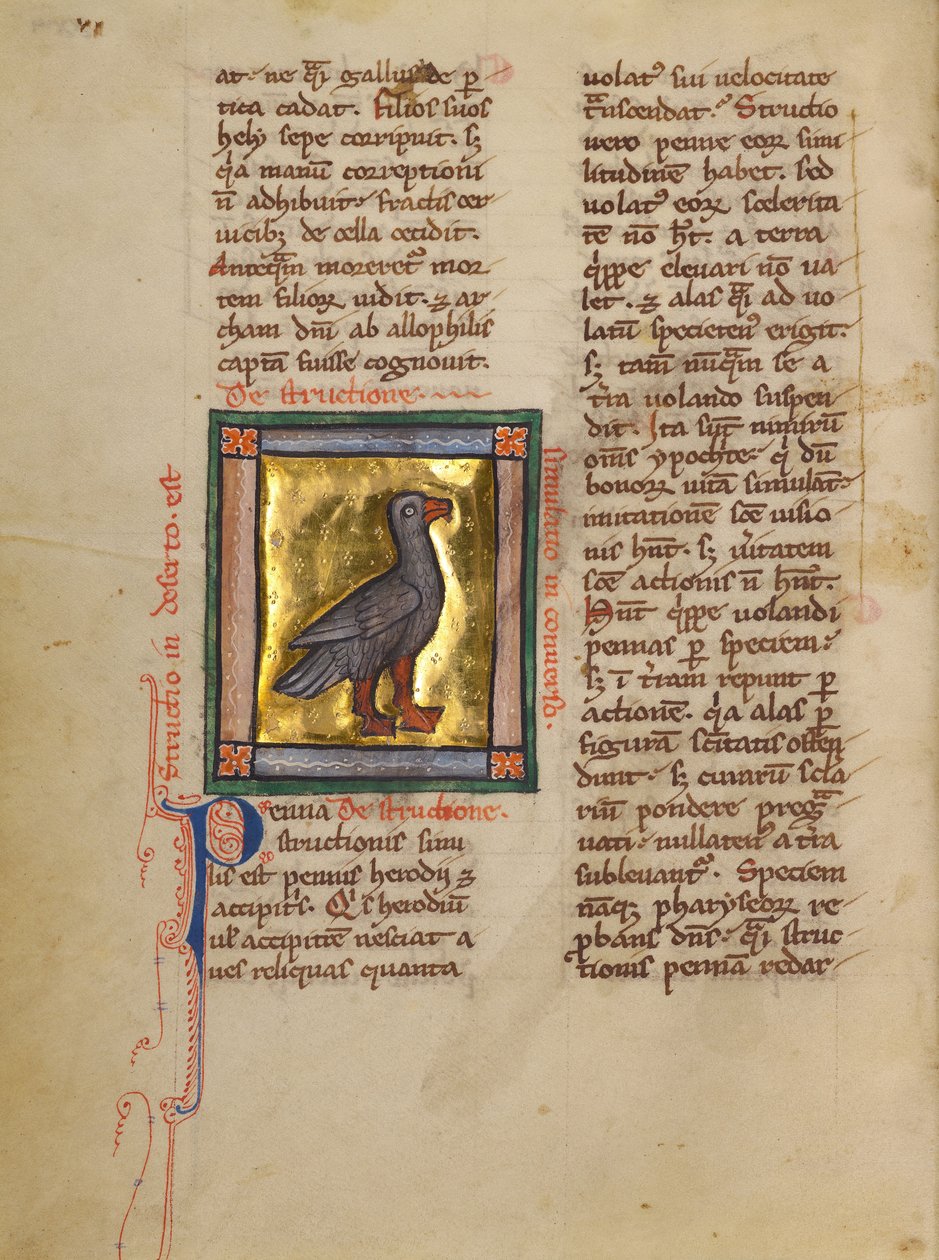 VI
at· ne q̄i gallus de p̄
tica cadat. Filios suos
hely sepe corripuit. sꝫ
q̇a manū correptiōi
n̄ adhibuit· fractis cer
uicibꝫ de cella cecidit.
Anteq̄m moreret᷒ mor
tem filioꝝ uidit. ⁊ ar
cham dn̄i ab allophilis
captā fuisse cognouit.
De structione.
Structio in deserto. est
similitudo in conuerso.
Penna De structione.
structionis simi
lis est pennis herodij ⁊
accipit᷒s. Q᷒s herodiū
ul̄ accipitrē nesciat a
ues reliquas quanta
uolat᷒ sui uelocitate
t̄nscendat. Structio
uero penne eoꝝ simi
litudinē habet. sed
uolat᷒ eoꝝ scelerita
tē nō h̄t. a terra
q̇ppe eleuari nō ua
let. ⁊ alas q̄i ad uo
latū specieten᷒ erigit.
sꝫ tam̄ nūq̄m se a
t̄ra uolando suspen
dit. Ita sūt nimirū
om̄s ypoc̄te· q̇ dū
bonoꝝ uitā simulāt·
imitationē sc̄e uisio
nis hn̄t. sꝫ u̇itatem
sc̄e actionis n̄ hn̄t.
Hn̄t q̇ppe uolandi
pennas ꝑ speciem·
sꝫ ī t̄ram repunt ꝑ
actionē. q̇a alas ꝑ
figurā sc̄itatis osten
dunt· sꝫ curarū sc̄la
riū pondere preḡ
uati· nullaten᷒ a t̄ra
subleuant᷒. Speciem
nāqꝫ pharyseoꝝ re
ꝓbans dn̄s· q̄i struc
tionis pennā redar